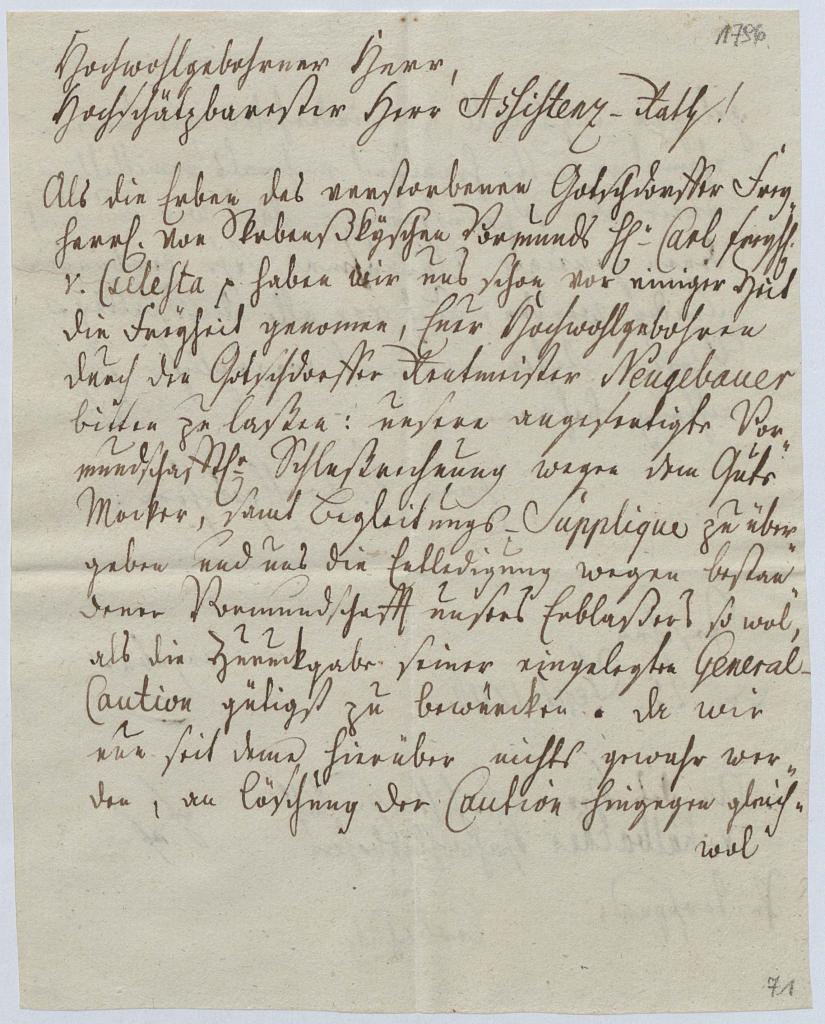 1796.
Hochwohlgebohrner Herr,
Hochschätzbarester Herr Assistenz-Rath!
Als die Erben des verstorbenen Gotschdorffer Frey„
herrl. von Skrbenßkyschen Vormunds H: Carl freyh.
v. Cselesta, haben wir uns schon vor einiger Zeit
die Freyheit genomen, Euer Hochwohlgebohren
durch den Gotschdorffer Rentmeister Neugebauer
bitten zu laßen: unsere angefertigte Vor„
mundschafftl. Schlußrechnung wegen dem Guts
Mocker, samt Begleitungs-Supplique zu über„
geben und uns die Entledigung wegen bestan„
dener Vormundschafft unsers Erblaßers so wol,
als die Zuruckgabe seiner eingelegten General-
Caution gütigst zu bewürcken. Da wir
nun seit deme hierüber nichts gewahr wer„
den, an Löschung der Caution hingegen gleich„
wol
71